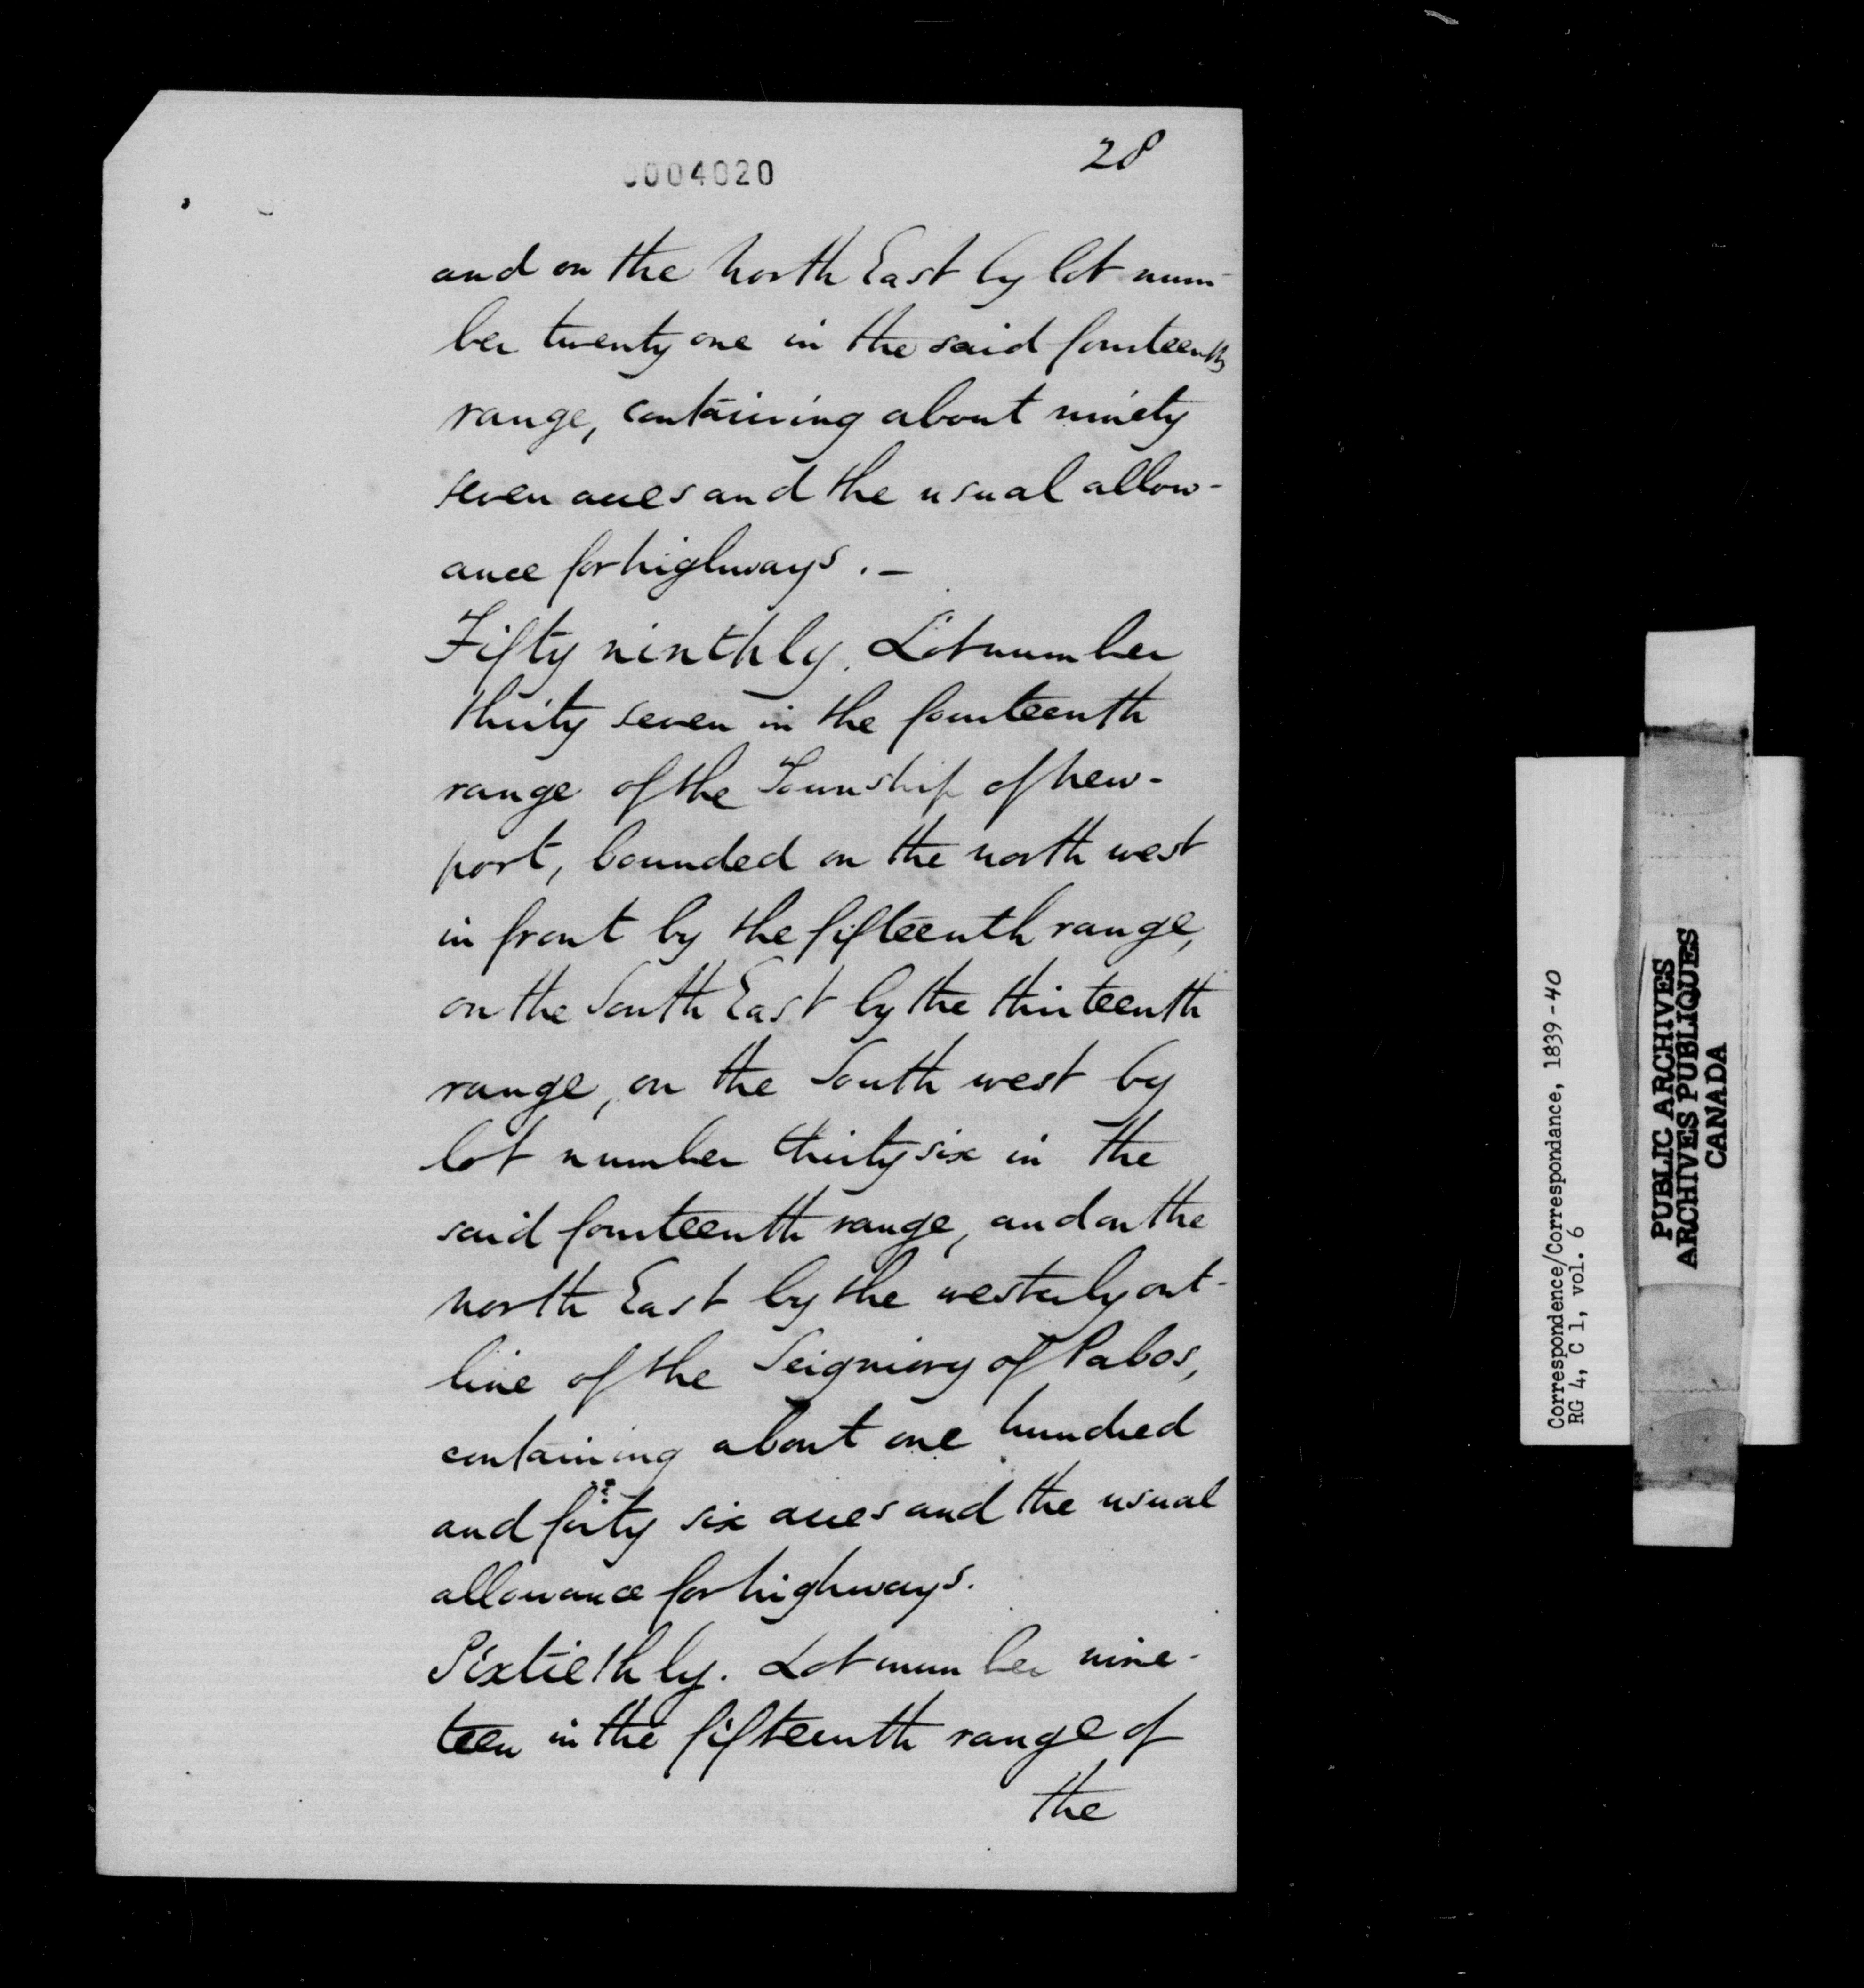 28
0004020
and on the North East by lot num-
ber twenty one in the said fourteenth
range, containing about ninety
seven acres and the usual allow-
ance for highways.-
Fifty ninthly. Lot number
thirty seven in the fourteenth
range of the Township of New-
port, bounded on the north west
in front by the fifteenth range,
on the South East by the thirteenth
range, on the South west by
lot number thirty six in the
said fourteenth range, and on the
North East by the westerly out-
line of the Seigniory of Pabos,
containing about one hundred
and forty six acres and the usual
allowance for highways.
Sixtiethly. Lot number nine-
teen in the fifteenth range of
the
Correspondence/Correspondance, 1839-40
RG 4, C 1, vol. 6
PUBLIC ARCHIVES
ARCHIVES PUBLIQUES
CANADA